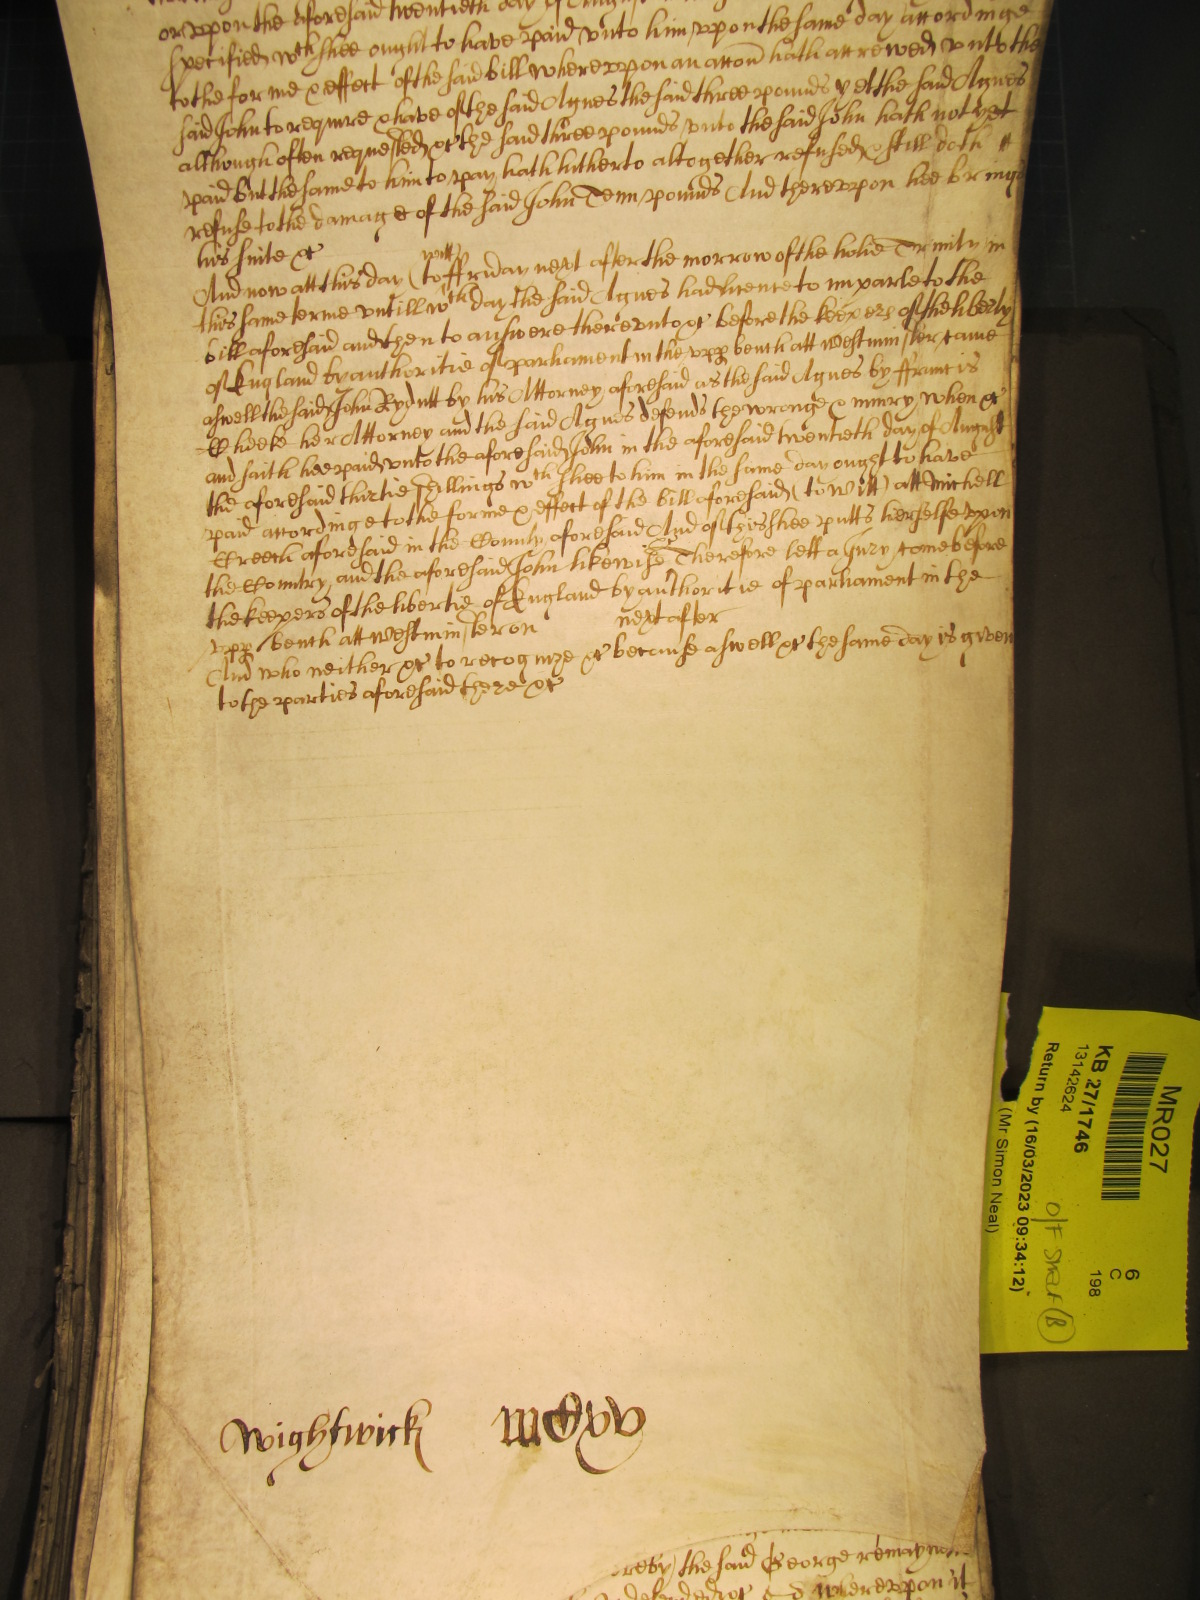 or vppon the aforesaid twentieth day of August
specified wch shee ought to have paid vnto him vppon the same day accordinge
to the forme & effect of the said bill wherevppon an accon hath accrewed vnto the
said John to require & have of the said Agnes the said three pounds yet the said Agnes
although often requested &c the said three pounds vnto the said John hath not yet
paid but the same to him to pay hath hitherto altogether refused & still doth
refuse to the damage of the said John Tenn pounds And therevppon hee brings
his suite &c
And now att this day (to witt) ffriday next after the morrow of the holie Trinity in
this same terme vntill wch day the said Agnes had licence to imparle to the
bill aforesaid and then to answere therevnto &c before the keepers of the liberty
of England by authoritie of parliament in the vpp bench att Westminster came
aswell the said John Rydutt by his Attorney aforesaid as the said Agnes by ffrancis
Cheeke her Attorney and the said Agnes defends the wronge & iniury when &c
and saith hee paid vnto the aforesaid John in the aforesaid twentieth day of August
the aforesaid thirtie shillings wch shee to him in the same day ought to have
paid accordinge to the forme & effect of the bill aforesaid (to witt) att Michell
Creech aforesaid in the County aforesaid And of this shee putts herselfe vpon
the Country and the aforesaid John likewise Therefore lett a Jury come before
the keepers of the libertie of England by authoritie of parliament in the
vpp bench att Westminster on next after
And who neither &c to recognize &c because aswell &c the same day is given
to the parties aforesaid there &c
Wightwick
reby the said George remayne
wherevpon it
MR027
KB 27/1746
13142624
Return by (16/03/2023 09:34:12)
(Mr Simon Neal)
6
C
198
O/F Shelf (B)